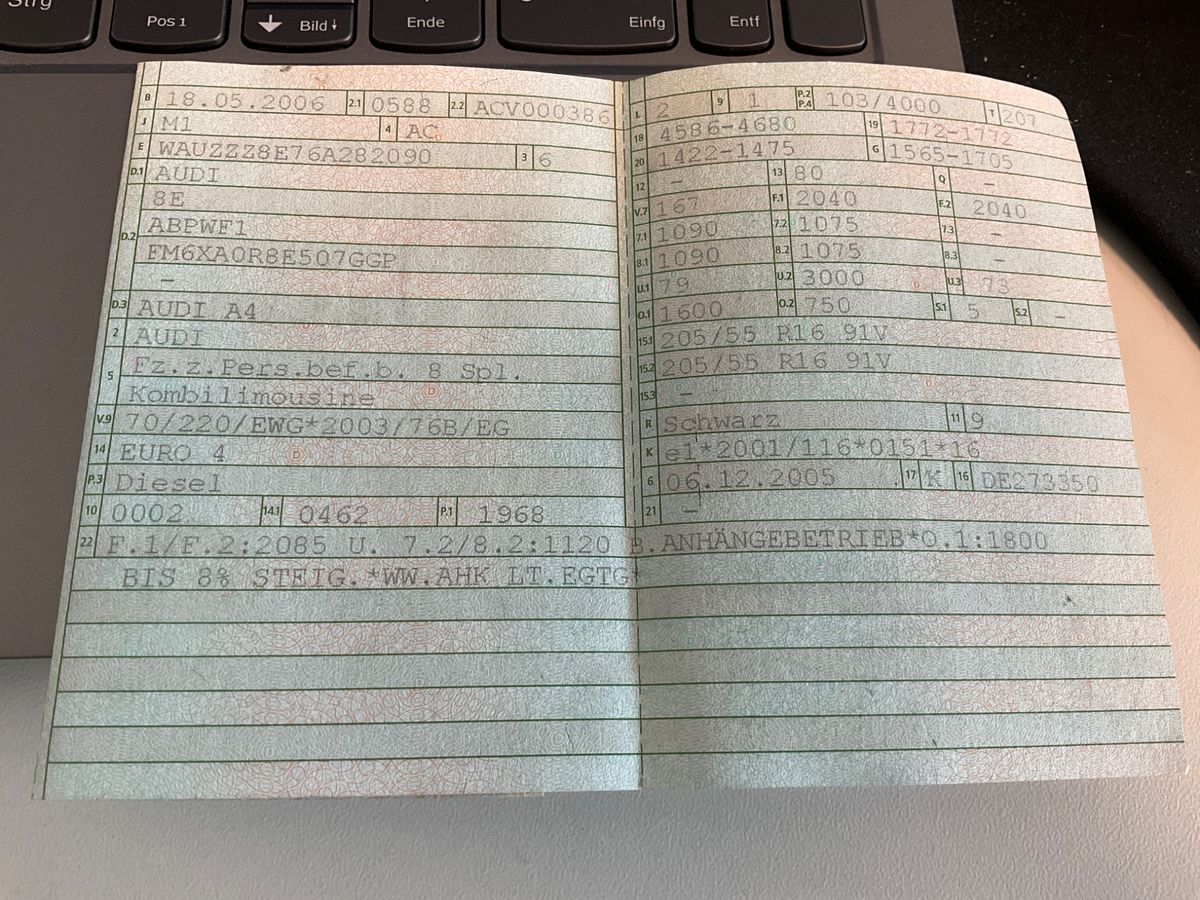 Strg
Pos 1
Bild
Ende
Einfg
Entf
B 18.05.2006 2.1 0588 2.2 ACV000386
J M1 4 AC
E WAUZZZ8E76A282090 3 6
D.1 AUDI
8E
D.2 ABPWF1
FM6XA0R8E507GGP
–
D.3 AUDI A4
2 AUDI
5 Fz.z.Pers.bef.b. 8 Spl.
Kombilimousine
V.9 70/220/EWG*2003/76B/EG
14 EURO 4
P.3 Diesel
10 0002 14.1 0462 P.1 1968
L 2 9 1 P.2 P.4 103/4000 T 207
18 4586-4680 19 1772-1772
20 1422-1475 G 1565-1705
12 – 13 80 Q –
V.7 167 F.1 2040 F.2 2040
7.1 1090 7.2 1075 7.3 –
8.1 1090 8.2 1075 8.3 –
U.1 79 U.2 3000 U.3 73
O.1 1600 O.2 750 S.1 5 S.2 –
15.1 205/55 R16 91V
15.2 205/55 R16 91V
15.3 –
R Schwarz 11 9
K e1*2001/116*0151*16
6 06.12.2005 17 K 16 DE273350
21 –
22 F.1/F.2:2085 U. 7.2/8.2:1120 B.ANHÄNGEBETRIEB*O.1:1800
BIS 8% STEIG.*WW.AHK LT.EGTG*